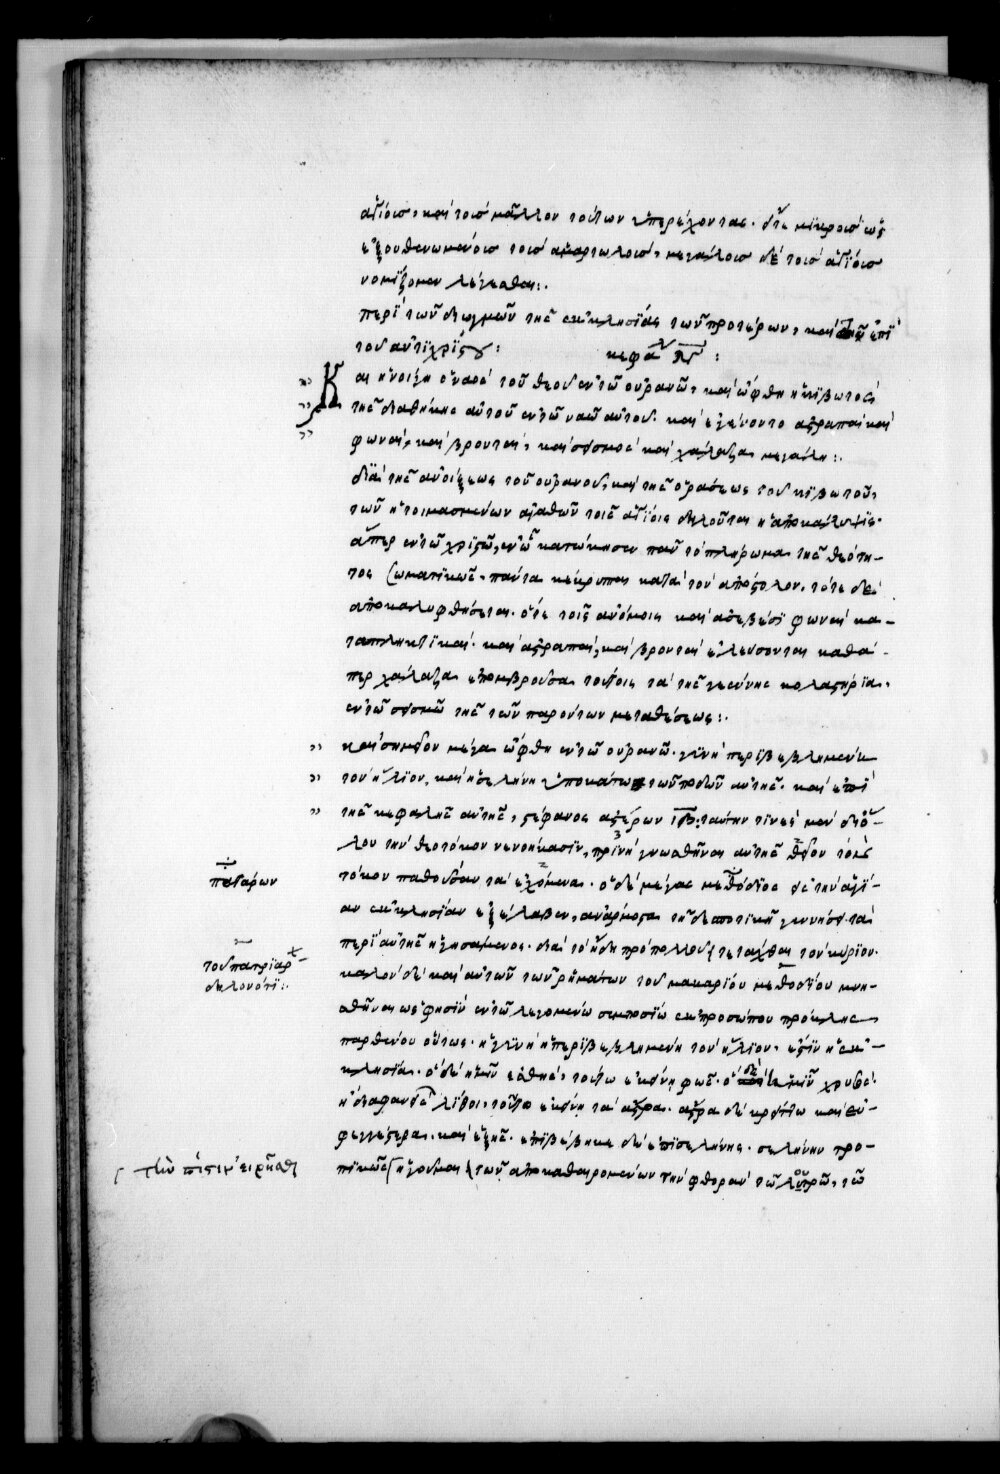 ἁγίοις, καὶ τοῖς μᾶλλον τούτων ὑπερέχοντας. ὅτε μικροῖς ὡς
ἐξουθενωμένοις τοῖς ἁμαρτωλοῖς, μεγάλοις δὲ τοῖς ἁγίοις
νομίζομεν λέγεσθαι:.
περὶ τῶν διωγμῶν τῆς ἐκκλησίας τῶν προτέρων, καὶ τῶν ἐπὶ
τοῦ ἀντιχρίστου: κεφα λγ:
Και ἠνοίγη ὁ ναὸς τοῦ θεοῦ ἐν τῶ οὐρανῶ, καὶ ὤφθη ἡ κιβωτὸς
τῆς διαθήκης αὐτοῦ ἐν τῶ ναῶ αὐτοῦ. καὶ ἐγένοντο ἀστραπαὶ καὶ
φωναὶ, καὶ βρονταὶ, καὶ σεισμὸς καὶ χάλαζα μεγάλη:.
διὰ τῆς ἀνοίξεως τοῦ οὐρανοῦ, καὶ τῆς ὁράσεως τοῦ κιβωτοῦ,
τῶν ἡτοιμασμένων ἀγαθῶν τοῖς ἁγίοις δηλοῦται ἡ ἀποκάλυψις.
ἅπερ ἐν τῶ χριστῶ, ἐν ὧ κατώκησεν πᾶν τὸ πλήρωμα τῆς θεότη-
τος σωματικῶς. πάντα κέκρυπται κατὰ τὸν ἀπόστολον. τότε δὲ
ἀποκαλυφθήσεται. ὅτε τοῖς ἀνόμοις καὶ ἀσεβέσι φωναὶ κα-
ταπληκτικαὶ. καὶ ἀστραπαὶ, καὶ βρονταὶ ἐλεύσονται καθά-
περ χάλαζα ἐπομβροῦσα τούτοις τὰ τῆς γεέννης κολαστήρια.
ἐν τῶ σεισμῶ τῆς τῶν παρόντων μεταθέσεως:.
καὶ σημεῖον μέγα ὤφθη ἐν τῶ οὐρανῶ. γυνὴ περιβεβλημένη
τὸν ἥλιον, καὶ ἡ σελήνη ὑποκάτω τῶν ποδῶν αὐτῆς. καὶ ἐπὶ
τῆς κεφαλῆς αὐτῆς, στέφανος ἀστέρων ιβ: ταύτην τινὲς μὲν διὸ-
λου τὴν θεοτόκον νενοήκασιν, πρινὴ γνωσθῆναι αὐτῆς θεῖον τόκ
τόκον παθοῦσαν τὰ ἐχόμενα. ὁ δὲ μέγας μεθόδιος εἰς τὴν ἁγί-
αν ἐκκλησίαν ἐξέλαβεν, ἀνάρμοστα τῆ δεσποτικῆ γεννήσει τὰ
περὶ αὐτῆς ἡγησάμενος. διὰ τὸ ἤδη πρὸ πολλοῦ τετάχθαι τὸν κύριον.
καλὸν δὲ καὶ αὐτῶν τῶν ῥημάτων τοῦ μακαρίου μεθοδίου μνη-
σθῆναι ὡς φησὶν ἐν τῶ λεγομένω συμποσίω ἐκ προσώπου πρόκλης
παρθένου οὕτως. ἡ γυνὴ ἡ περιβεβλημένη τὸν ἥλιον, ἐστὶν ἡ ἐκ-
κλησία. ὁ δὲ ἡμῖν ἐσθὴς, τούτω ἐκείνη φῶς. ὁ δὲ ἡμῖν χρυσὸς
ἢ διαφανεῖς λίθοι, τοῦτο ἐκείνη τὰ ἄστρα. ἄστρα δὲ κρείττω καὶ εὐ-
φεγγέστερα. καὶ ἑξῆς. ἐπιβέβηκε δὲ ἐπὶ σελήνης. σελήνην τρο-
πικῶς ἡγοῦμαι τῶν ἀποκαθαιρομένων τὴν φθορὰν τῶ λουτρῶ, τῶ
πατάρων
τοῦ πατριάρχ
δηλονότι:.
τὴν πίστιν εἰρῆσθαι